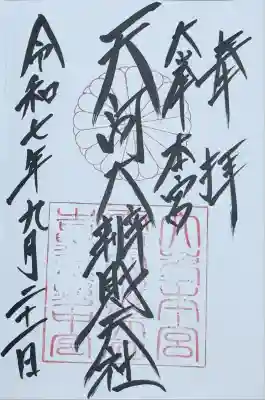 奉拝
大峯本宮
天河大辨財天社
令和七年九月二十一日